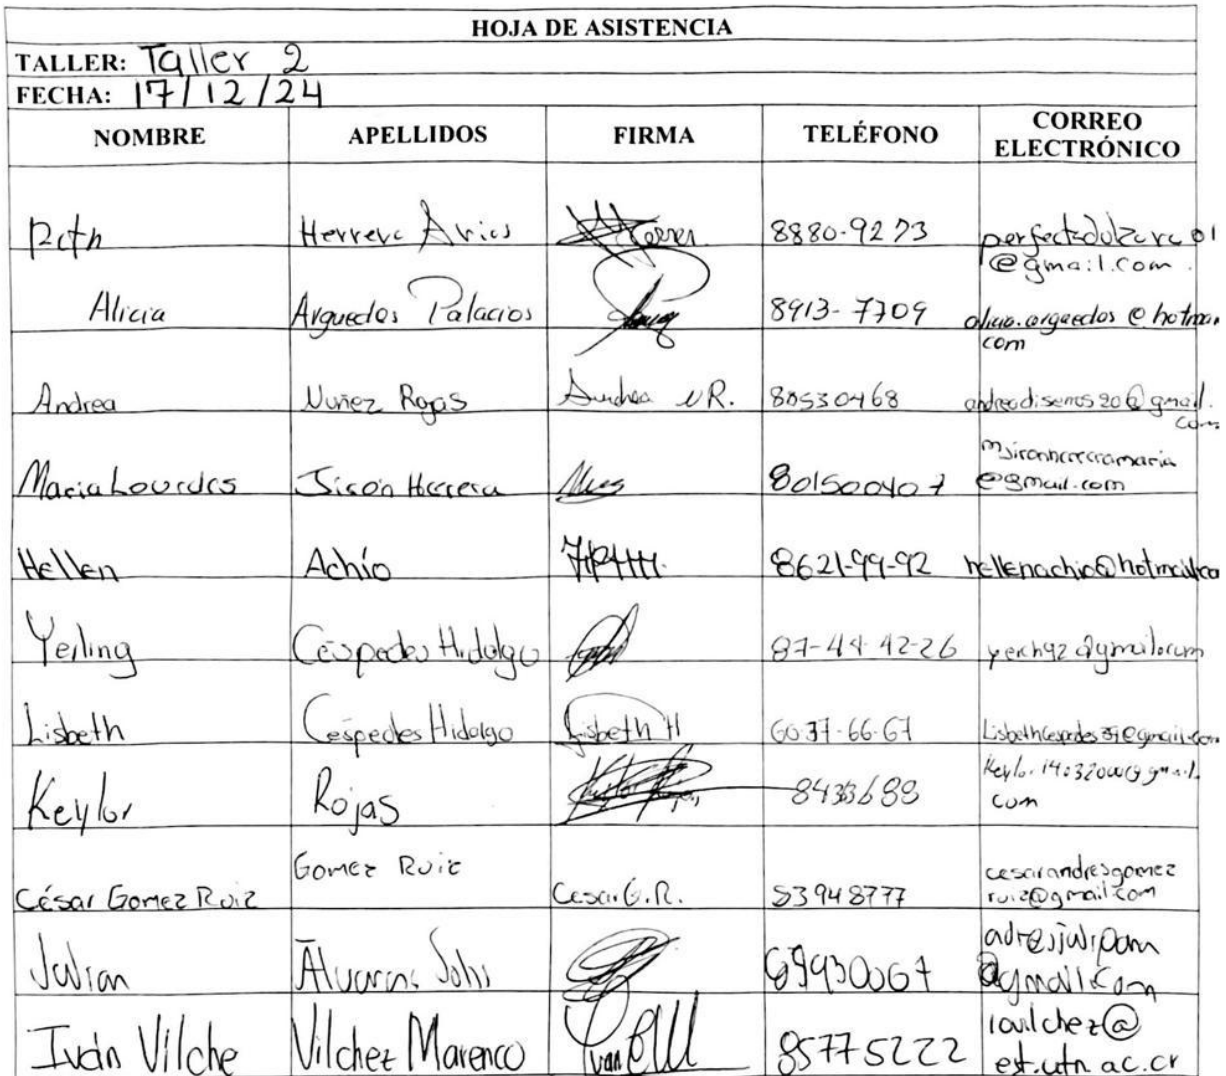 HOJA DE ASISTENCIA
TALLER: Taller 2
FECHA: 17/12/24
NOMBRE APELLIDOS FIRMA TELÉFONO CORREO ELECTRÓNICO
Herrera Arias 8880-9273
@gmail.com
Alicia Arguedas Palacios 8913-7709 alicia.arguedas@hotmai
com
Andrea Nuñez Rojas Andrea NR. 80530468 andreadisenos20@gmail.
com
Maria Lourdes Siron Herrera 801500407
@gmail.com
Hellen Achío 8621-99-92 hellenachio@hotmail.co
Yeiling Céspedes Hidalgo 87-44-42-26
Lisbeth Céspedes Hidalgo Lisbeth H 60-37-66-67 Lisbethcespedes37@gmail.com
Keylor Rojas
com
César Gomez Ruiz Gomez Ruiz Cesar G.R. 83948777 cesarandresgomez
ruiz@gmail.com
Julian 69930067
@gmail.com
Iván Vilche Vilchez Marenco Ivan 85775222 iavilchez@
est.utn.ac.cr